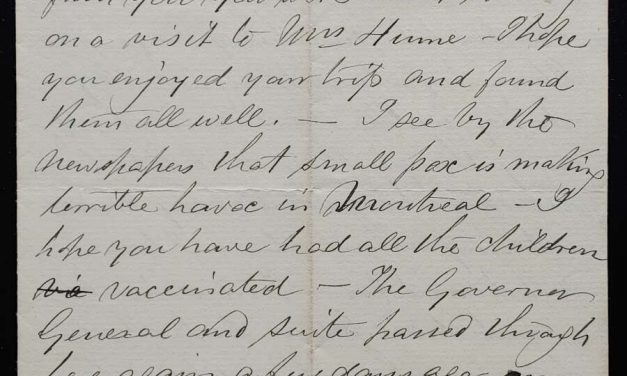 on a visit to Mrs Hume - I hope
you enjoyed your trip and found
them all well. — I see by the
newspapers that small pox is making
terrible havoc in Montreal - I
hope you have had all the children
vaccinated - The Governor
General and suite passed through
here again a few days ago